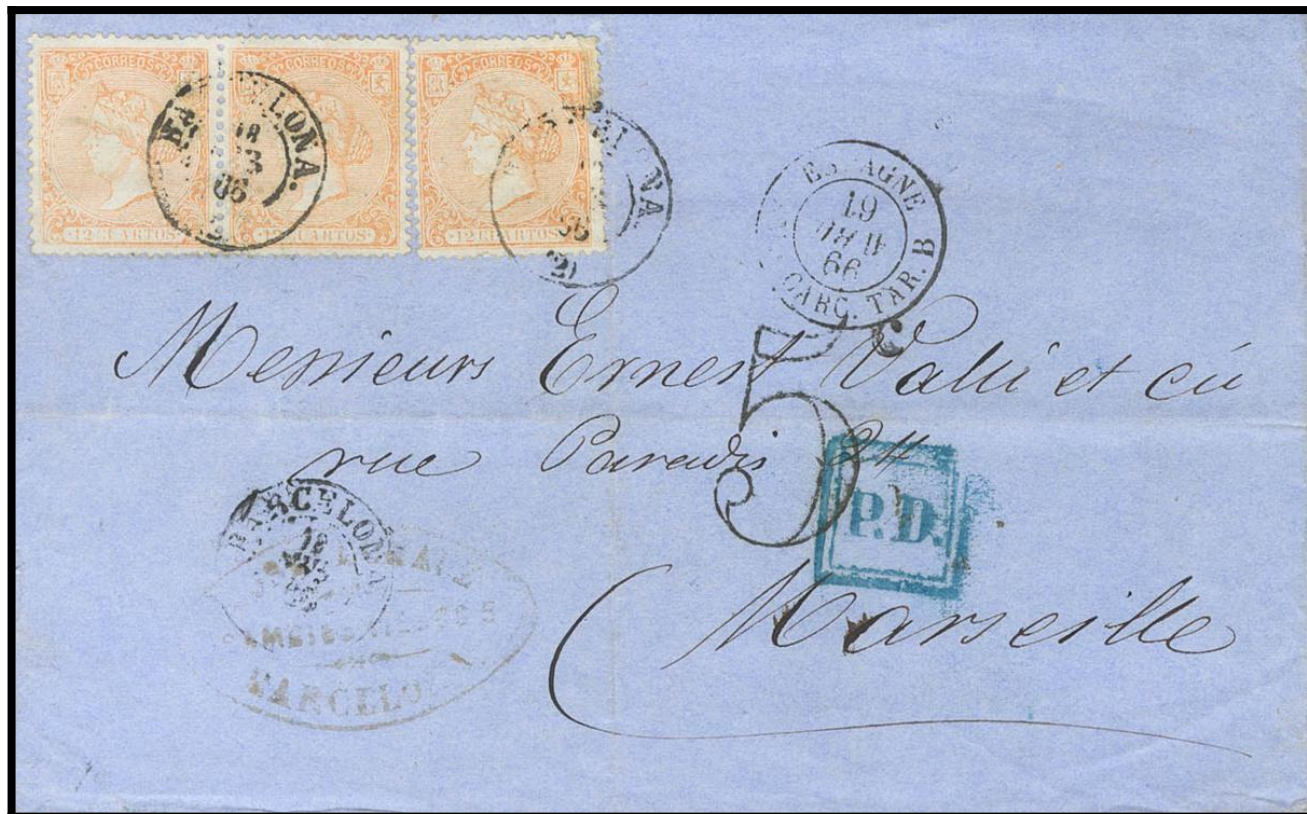 CORREOS CORREOS CORREOS
12 CUARTOS 12 CUARTOS 12 CUARTOS
BARCELONA.
18
66
66
(2)
ESPAGNE
19
66
CARC. TAR. B
Messieurs Ernest Valli et cie
rue Paradis
5 c
P.D.
Marseille
BARCELONA
18
BARCELO